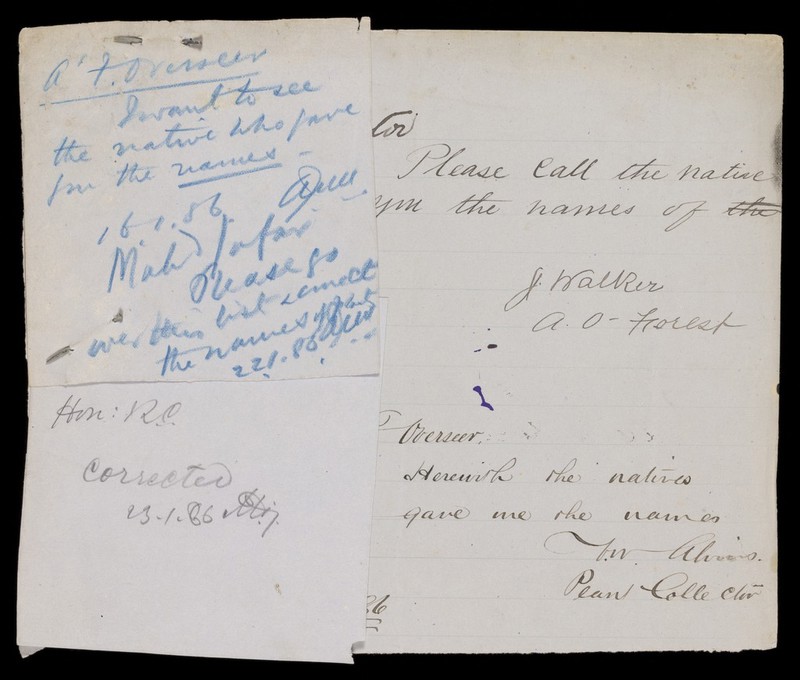 A' F. Overseer
I want to see
the native who gave
you the names -
16.1.86.
Mahd Jafar
Please go
over this list & correct
the names of plants
22.1.86
Hon: R.C.
Corrected
23.1.86
tor
Please Call the native
you the names of the
J. Walker
A. O- Forest
Overseer.
Herewith the natives
gave me the names
T.W. Alvins.
Plant Collector
86